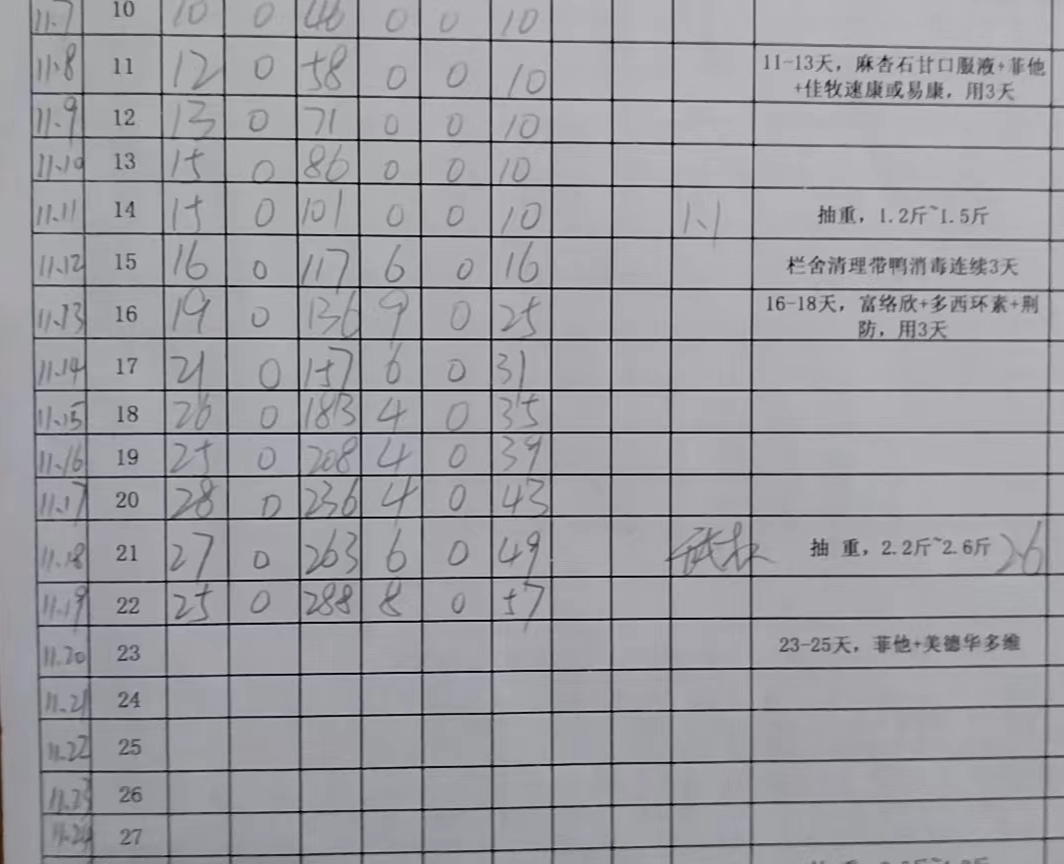 11.7 10 10 0 46 0 0 10
11.8 11 12 0 58 0 0 10 11-13天，麻杏石甘口服液+菲他
+佳牧速康或易康，用3天
11.9 12 13 0 71 0 0 10
11.10 13 15 0 86 0 0 10
11.11 14 15 0 101 0 0 10 1.1 抽重，1.2斤~1.5斤
11.12 15 16 0 117 6 0 16 栏舍清理带鸭消毒连续3天
11.13 16 19 0 136 9 0 25 16-18天，富络欣+多西环素+荆
防，用3天
11.14 17 21 0 157 6 0 31
11.15 18 26 0 183 4 0 35
11.16 19 25 0 208 4 0 39
11.17 20 28 0 236 4 0 43
11.18 21 27 0 263 6 0 49 抽 重，2.2斤~2.6斤 2.6
11.19 22 25 0 288 8 0 57
11.20 23 23-25天，菲他+美德华多维
11.21 24
11.22 25
11.23 26
11.24 27